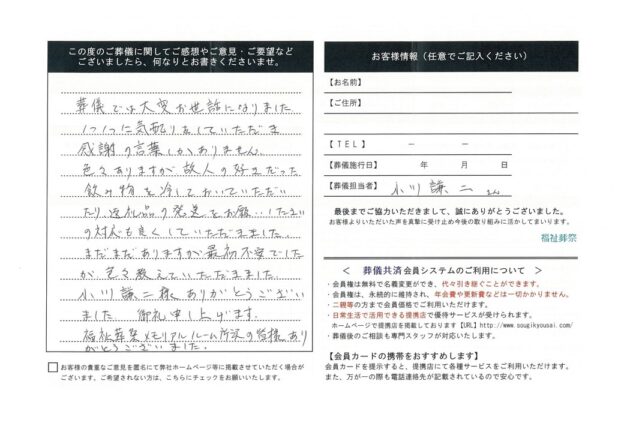 この度のご葬儀に関してご感想やご意見・ご要望など
ございましたら、何なりとお書きくださいませ。
葬儀では大変お世話になりました
1つ1つに気配りをしていただき
感謝の言葉しかありません。
色々ありますが故人の好きだった
飲み物を冷しておいていただい
たり返礼品の発送をお願いしたさい
の対応も良くしていただきました。
まだまだありますが最初不安でした
が色々教えていただきました
小川謙二様ありがとうござい
ました。御礼申し上げます。
福祉葬祭メモリアルルーム所沢の皆様あり
がとうございました。
お客様の貴重なご意見を匿名にて弊社ホームページ等に掲載させていただく場合が
ございます。ご希望されない方は、こちらにチェックをお願いいたします。
お客様情報（任意でご記入ください）
【お名前】
【ご住所】
【ＴＥＬ】 － －
【葬儀施行日】 年 月 日
【葬儀担当者】 小川 謙二 さん
最後までご協力いただきまして、誠にありがとうございました。
お客様よりいただいた声を真摯に受け止め今後の取り組みに活かしてまいります。
福祉葬祭
＜ 葬儀共済 会員システムのご利用について ＞
・会員権は無料で名義変更ができ、代々引き継ぐことができます。
・会員権は、永続的に維持され、年会費や更新費などは一切かかりません。
・二親等の方まで会員価格でご利用いただけます。
・日常生活で活用できる提携店で優待サービスが受けられます。
ホームページで提携店を掲載しております【URL】http://www.sougikyousai.com/
・葬儀後のご相談も専門スタッフが対応いたします。
【会員カードの携帯をおすすめします】
会員カードを提示すると、提携店にて各種サービスをご利用いただけます。
また、万が一の際も電話連絡先が記載されているので安心です。